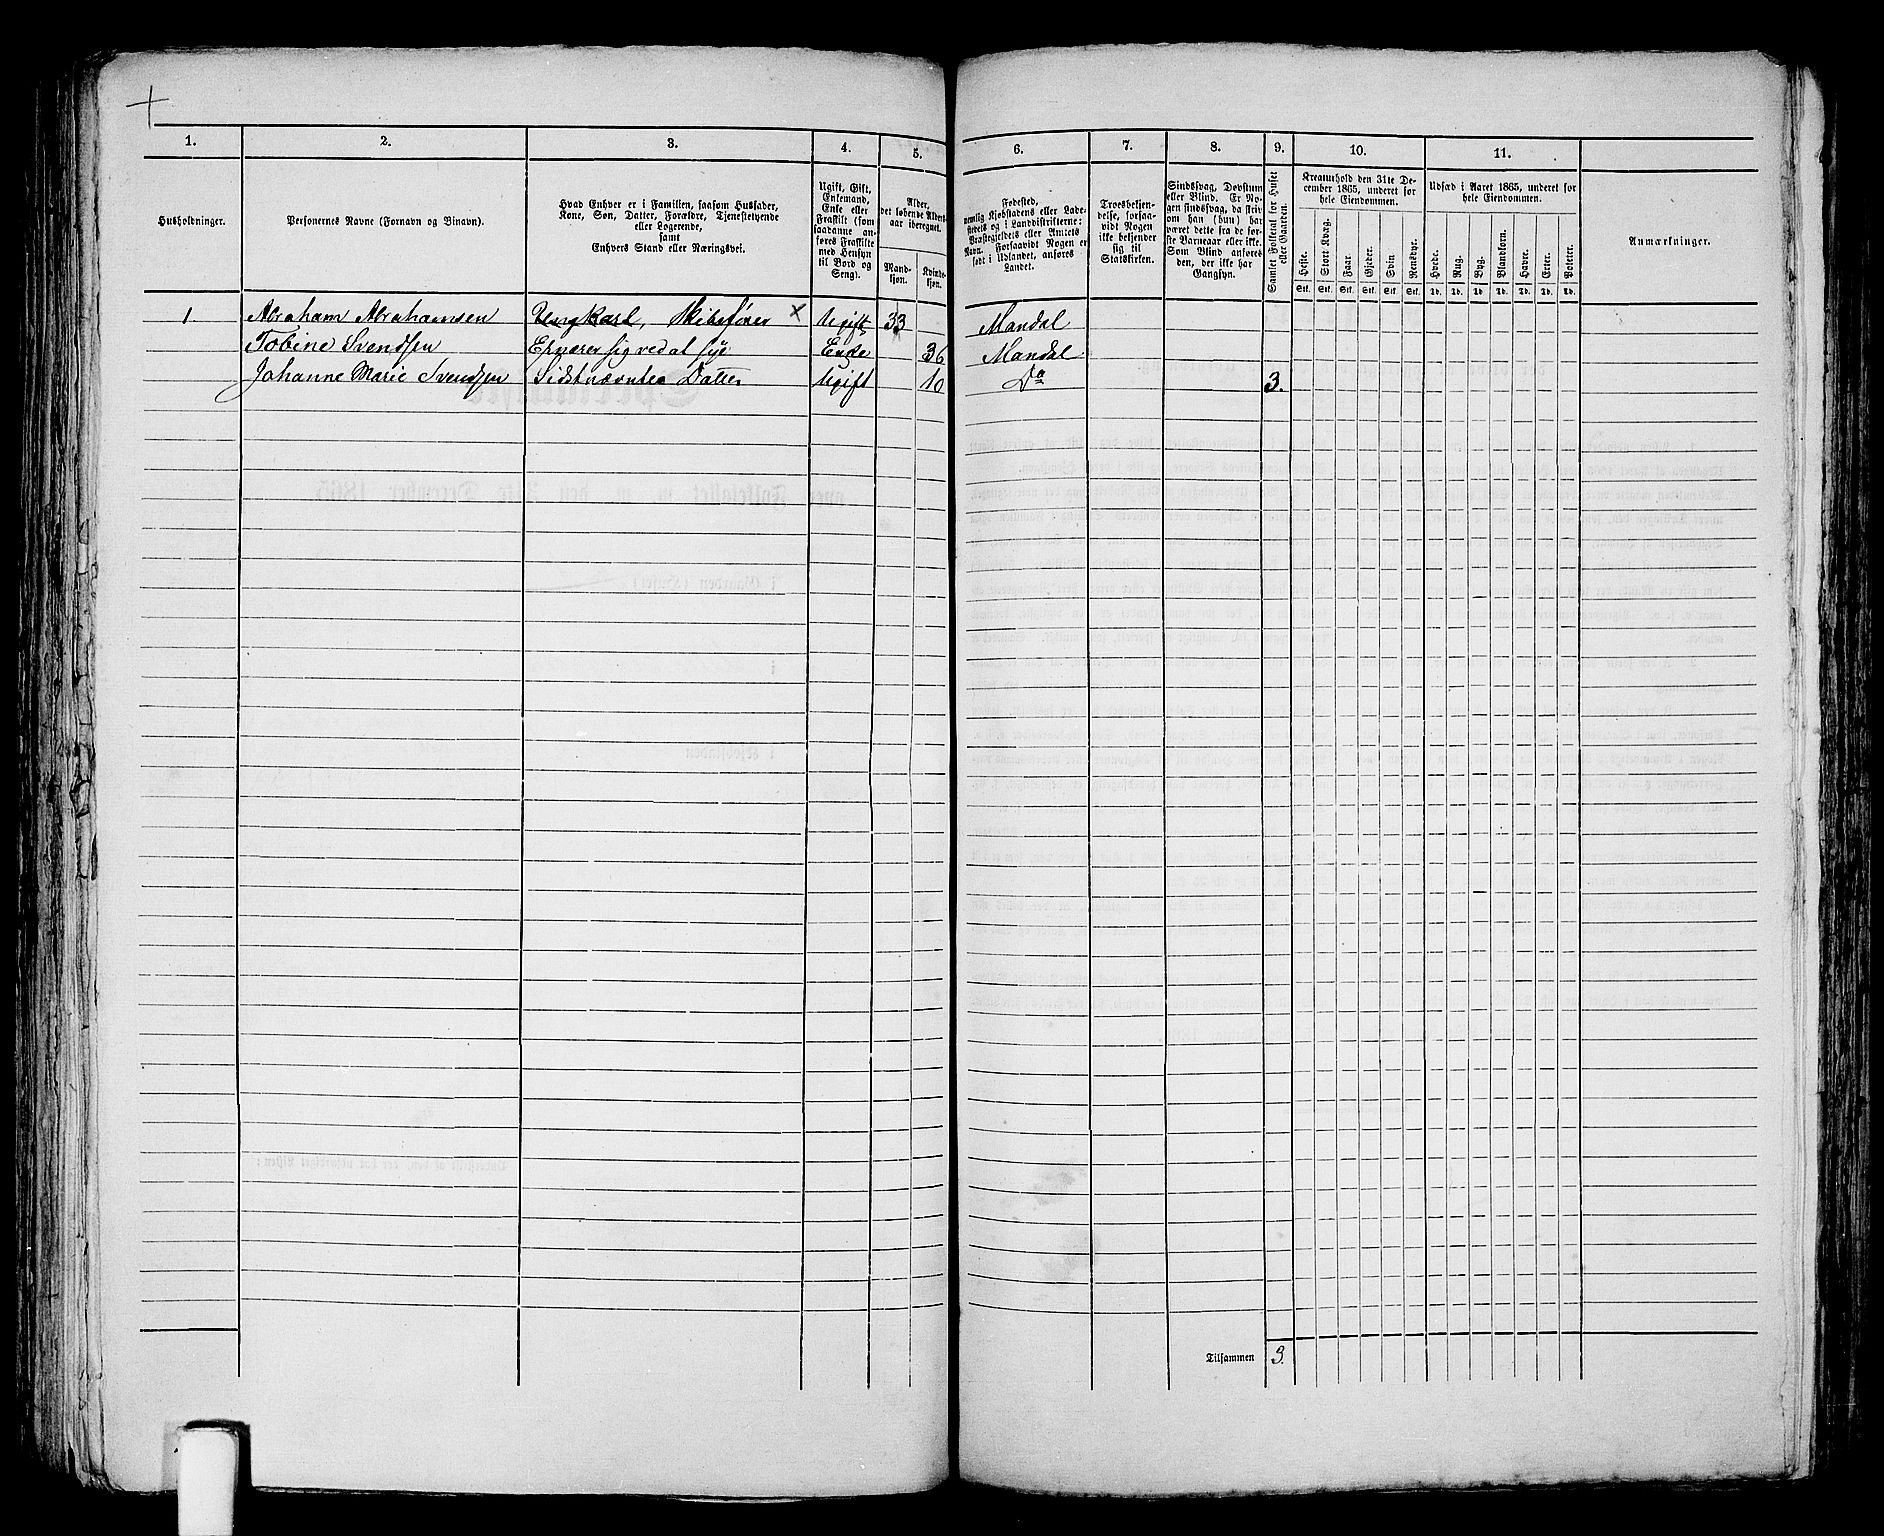 1. 2. 3. 4. 5. 6. 7. 8. 9. 10. 11.
Husholdninger.
Personernes Navne (Fornavn og Binavn).
Hvad Enhver er i Familien, saasom Husfader,
Kone, Søn, Datter, Forældre, Tjenestetyende
eller Logerende,
samt
Enhvers Stand eller Næringsvei.
Ugift, Gift,
Enkemand,
Enke eller
Fraskilt (som
saadanne an-
føres Fraskilte
med Hensyn
til Bord og
Seng).
Alder,
det løbende Alders-
aar iberegnet.
Mand-
kjøn.
Kvinde-
kjøn.
Fødested,
nemlig Kjøbstadens eller Lade-
stedets og i Landdistrikterne:
Præstegjeldets eller Amtets
Navn. Forsaavidt Nogen er
født i Udlandet, anføres
Landet.
Troesbekjen-
delse, forsaa-
vidt Nogen
ikke bekjender
sig til
Statskirken.
Sindssvag, Døvstum
eller Blind. Er No-
gen sindssvag, da skriv
om han (hun) har
været dette fra de før-
ste Barneaar eller ikke.
Som Blind anføres
den, der ikke har
Gangsyn.
Samlet Folketal for Huset
eller Gaarden.
Kreaturhold den 31te De-
cember 1865, underet for
hele Eiendommen.
Heste. Stort Kvæg. Faar. Gjeder. Svin. Rensdyr.
Stk. Stk. Stk. Stk. Stk. Stk.
Udsæd i Aaret 1865, underet for
hele Eiendommen.
Hvede. Rug. Byg. Blandkorn. Havre. Erter. Poteter.
Td. Td. Td. Td. Td. Td. Td.
Anmærkninger.
1 Abraham Abrahamsen Ungkarl, Skibsfører x Ugift 33 Mandal
Tobine Svendsen Ernærer sig ved at sye Enke 36 Mandal
Johanne Marie Svendsen Sidstnævntes Datter Ugift 10 Do 3.
Tilsammen 3.